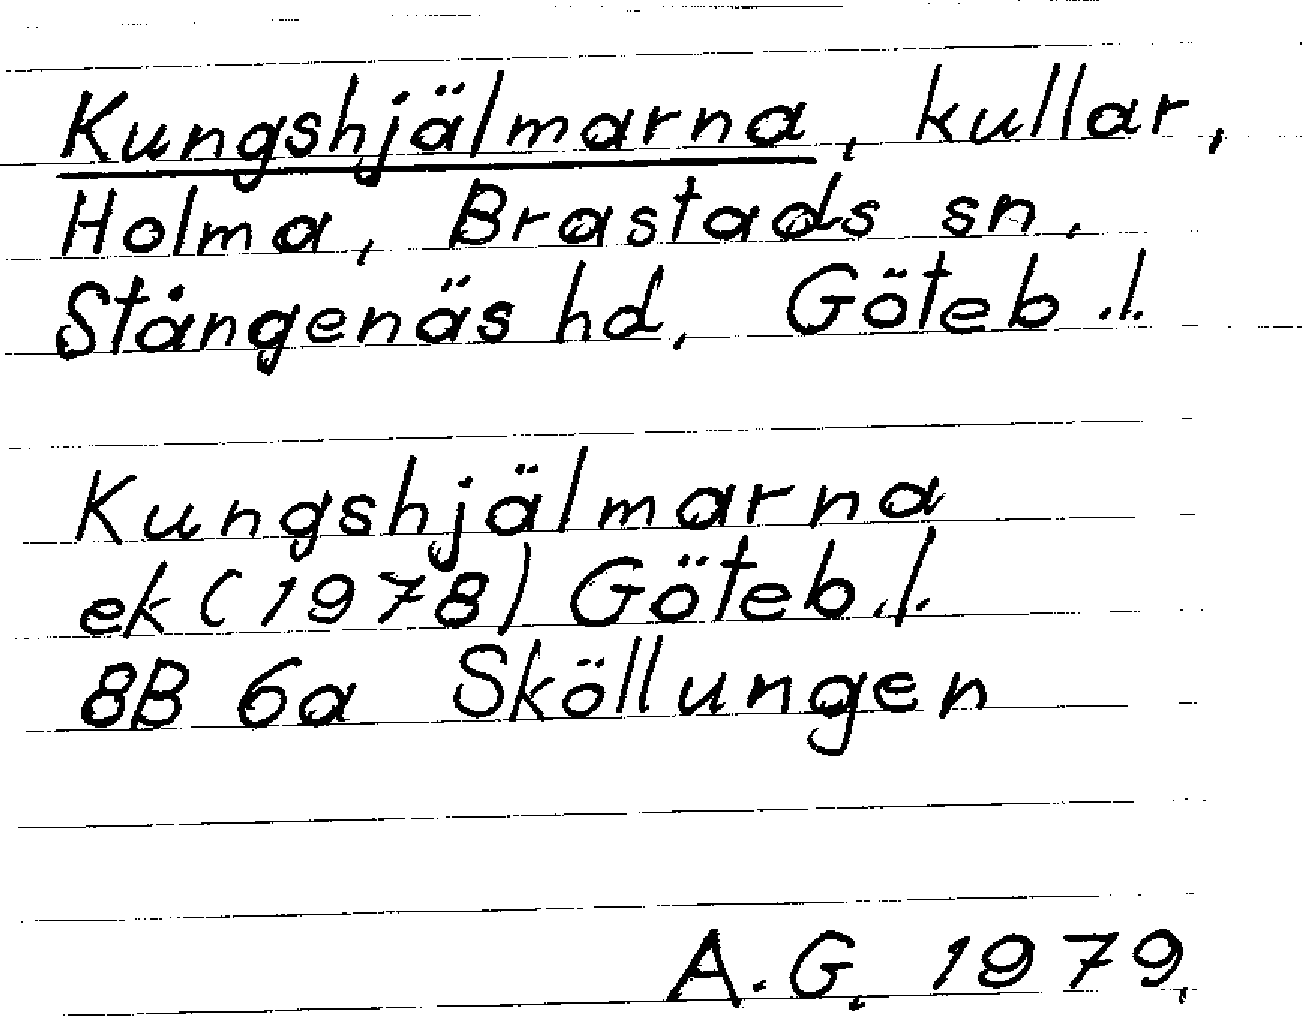 Kungshjälmarna, kullar,
Holma, Brastads sn,
Stångenäs hd, Göteb.l.
Kungshjälmarna
ek (1978) Göteb.l.
8B 6a Sköllungen
A.G. 1979.